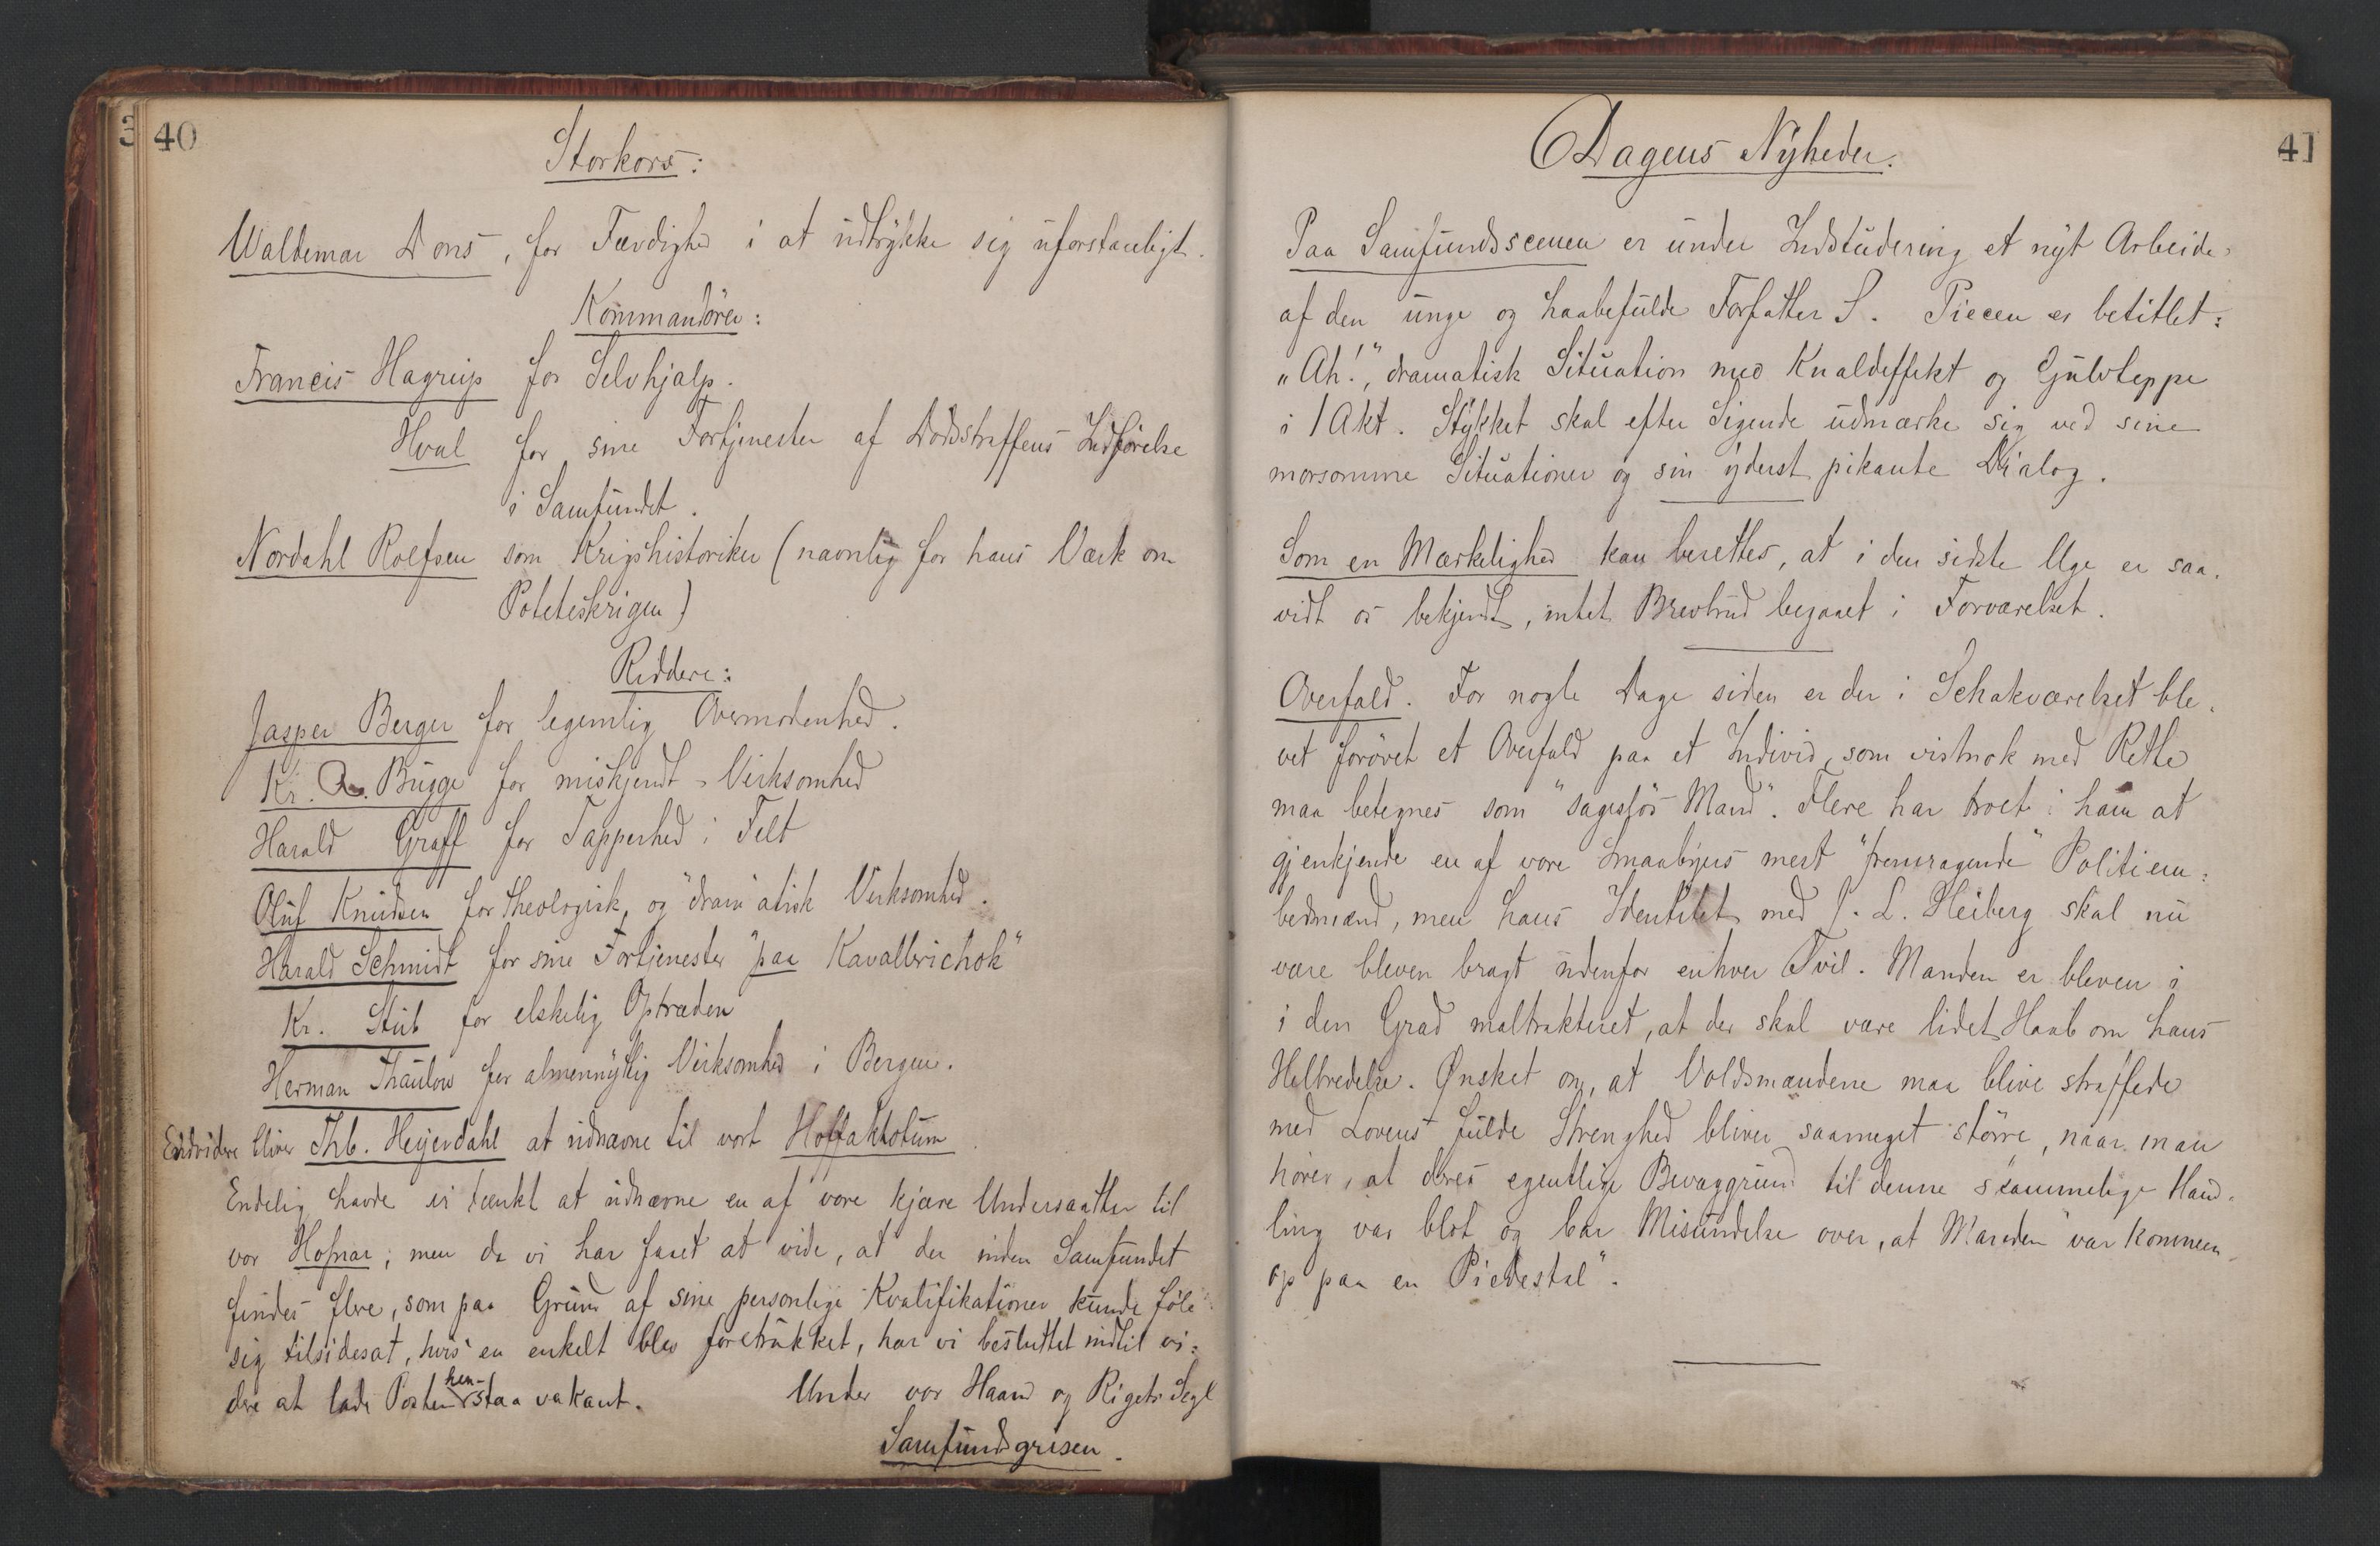 3
40
Storkors:
Waldemar Dons, for Færdighed i at udtrykke sig uforstaaeligt.
Kommandörer:
Francis Hagrup for Selvhjælp.
Hval for sine Fortjenester af Dødsstraffens Indførelse
i Samfundet.
Nordahl Rolfsen som Krigshistoriker (navnlig for hans Værk om
Poteteskrigen)
Riddere:
Jasper Berger for legemlig Overmodenhed.
Kr. A. Bugge for miskjendt Virksomhed
Harald Graff for Tapperhed i Felt
Oluf Knudsen for theologisk og "dram"atisk Virksomhed.
Harald Schmidt for sine Fortjenester "paa Kavallerichok"
Kr. Stub for elskelig Optræden
Herman Thaulow for almennyttig Virksomhed i Bergen.
Endvidere bliver Thb. Heyerdahl at udnævne til vort Hoffaktotum
Endelig havde vi tænkt at udnævne en af vore kjære Undersaatter til
vor Hofnar; men da vi har faaet at vide, at der inden Samfundet
findes flere, som paa Grund af sine personlige Kvalifikationer kunde føle
sig tilsidesat, hvis en enkelt blev foretrukket, har vi besluttet indtil vi=
dere at lade Posten henstaa vakant.
Under vor Haand og Rigets Segl
Samfundsgrisen.
41
Dagens Nyheder.
Paa Samfundsscenen er under Indstudering et nyt Arbeide
af den unge og haabefulde Forfatter S. Piecen er betitlet:
"Ah!", dramatisk Situation med Knaldeffekt og Gulvteppe
i 1 Akt. Stykket skal efter Sigende udmærke sig ved sine
morsomme Situationer og sin yderst pikante Dialog.
Som en Mærkelighed kan berettes, at i den sidste Uge er saa-
vidt os bekjendt, intet Brevbrud begaaet i Forværelset.
Overfald. For nogle Dage siden er der i Schakværelset ble-
vet forövet et Overfald paa et Individ, som vistnok med Rette
maa betegnes som "sagesløs Mand". Flere har troet i ham at
gjenkjende en af vore Smaabyers mest "fremragende" Politiem=
bedmænd, men hans Identitet med J. L. Heiberg skal nu
være bleven bragt udenfor enhver Tvil. Manden er bleven i
i den Grad maltrakteret, at der skal være lidet Haab om hans
Helbredelse. Ønsket om, at Voldsmændene maa blive straffede
med Lovens fulde Strenghed bliver saameget större, naar man
hører, at deres egentlige Bevæggrund til denne skammelige Hand-
ling var blot og bar Misundelse over, at Manden "var kommen
op paa en Piedestal".